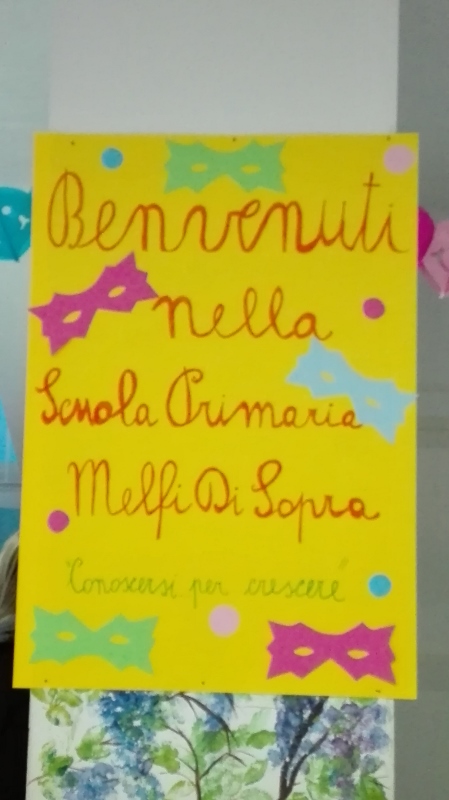 Benvenuti
nella
Scuola Primaria
Melfi Di Sopra
"Conoscersi per crescere"